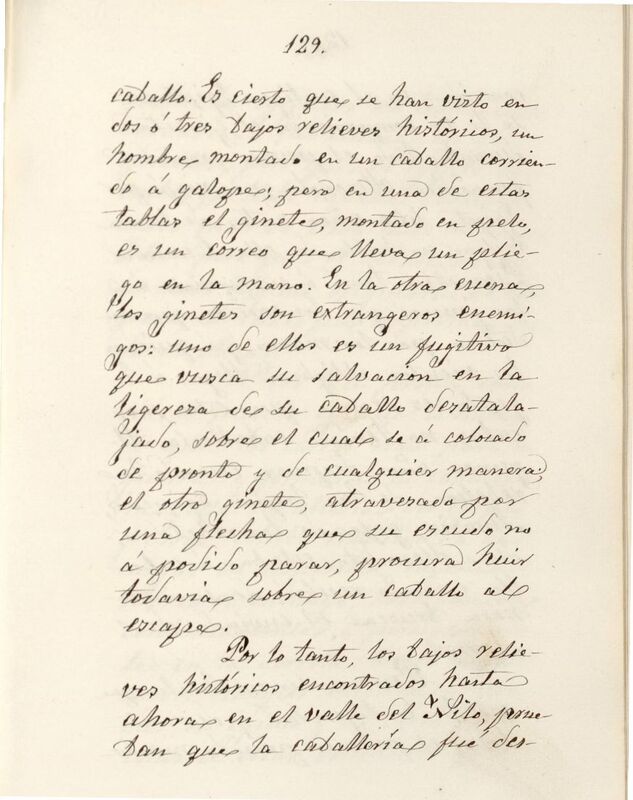 129.
caballo. Es cierto que se han visto en
dos ó tres bajos relieves históricos, un
hombre montado en un caballo corrien-
do á galope; pero en una de estas
tablas el ginete, montado en pelo,
es un correo que lleva un plie-
go en la mano. En la otra escena,
los ginetes son extrangeros enemi-
gos: uno de ellos es un fugitivo
que vusca su salvación en la
ligereza de su caballo desatala-
jado, sobre el cual se á colocado
de pronto y de cualquier manera;
el otro ginete, atravesado por
una flecha que su escudo no
á podido parar, procura huir
todavia sobre un caballo al
escape.
Por lo tanto, los bajos relie-
ves históricos encontrados hasta
ahora en el valle del Nilo, prue-
ban que la caballería fué des-